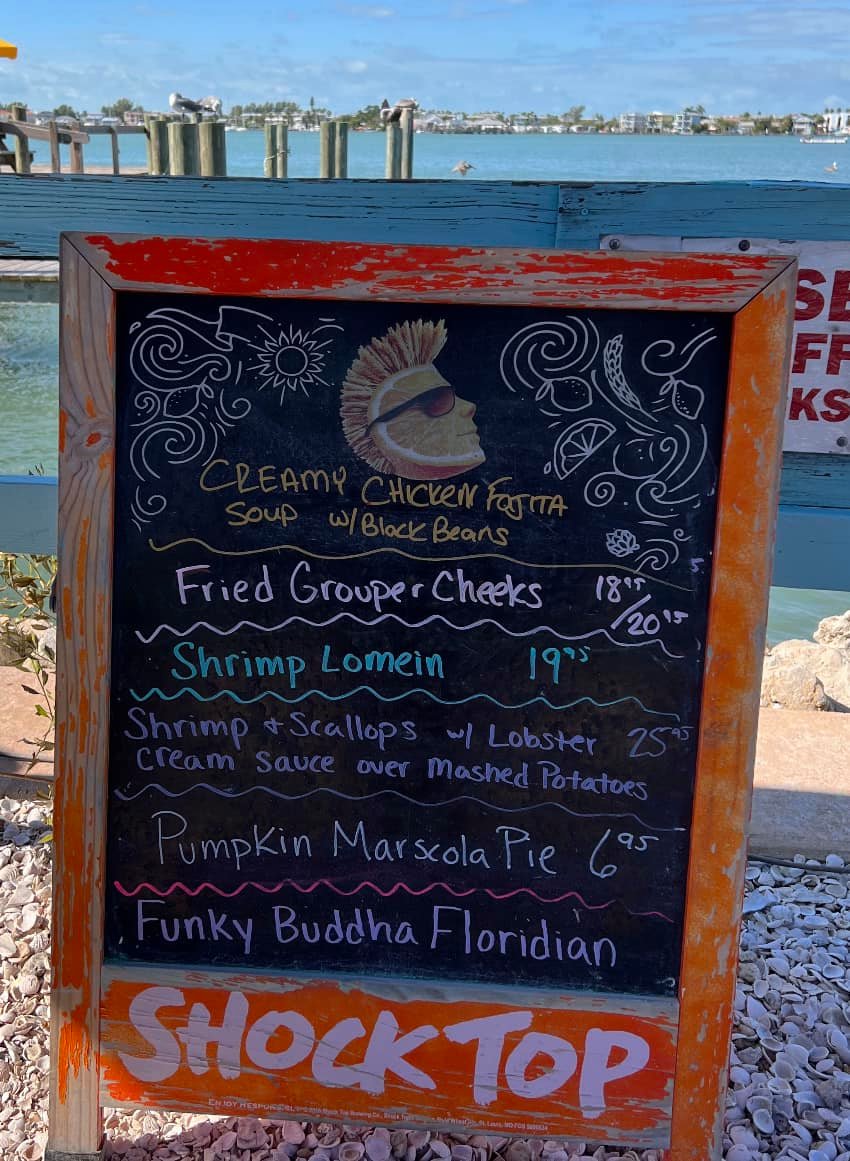 CREAMY CHICKEN FAJITA
SOUP w/ Black Beans
Fried Grouper Cheeks 18⁹⁵
/20⁹⁵
Shrimp Lomein 19⁹⁵
Shrimp + Scallops w/ Lobster 25⁹⁵
cream sauce over mashed Potatoes
Pumpkin Marscola Pie 6⁹⁵
Funky Buddha Floridian
SHOCK TOP
ENJOY RESPONSIBLY
SE
FF
KS